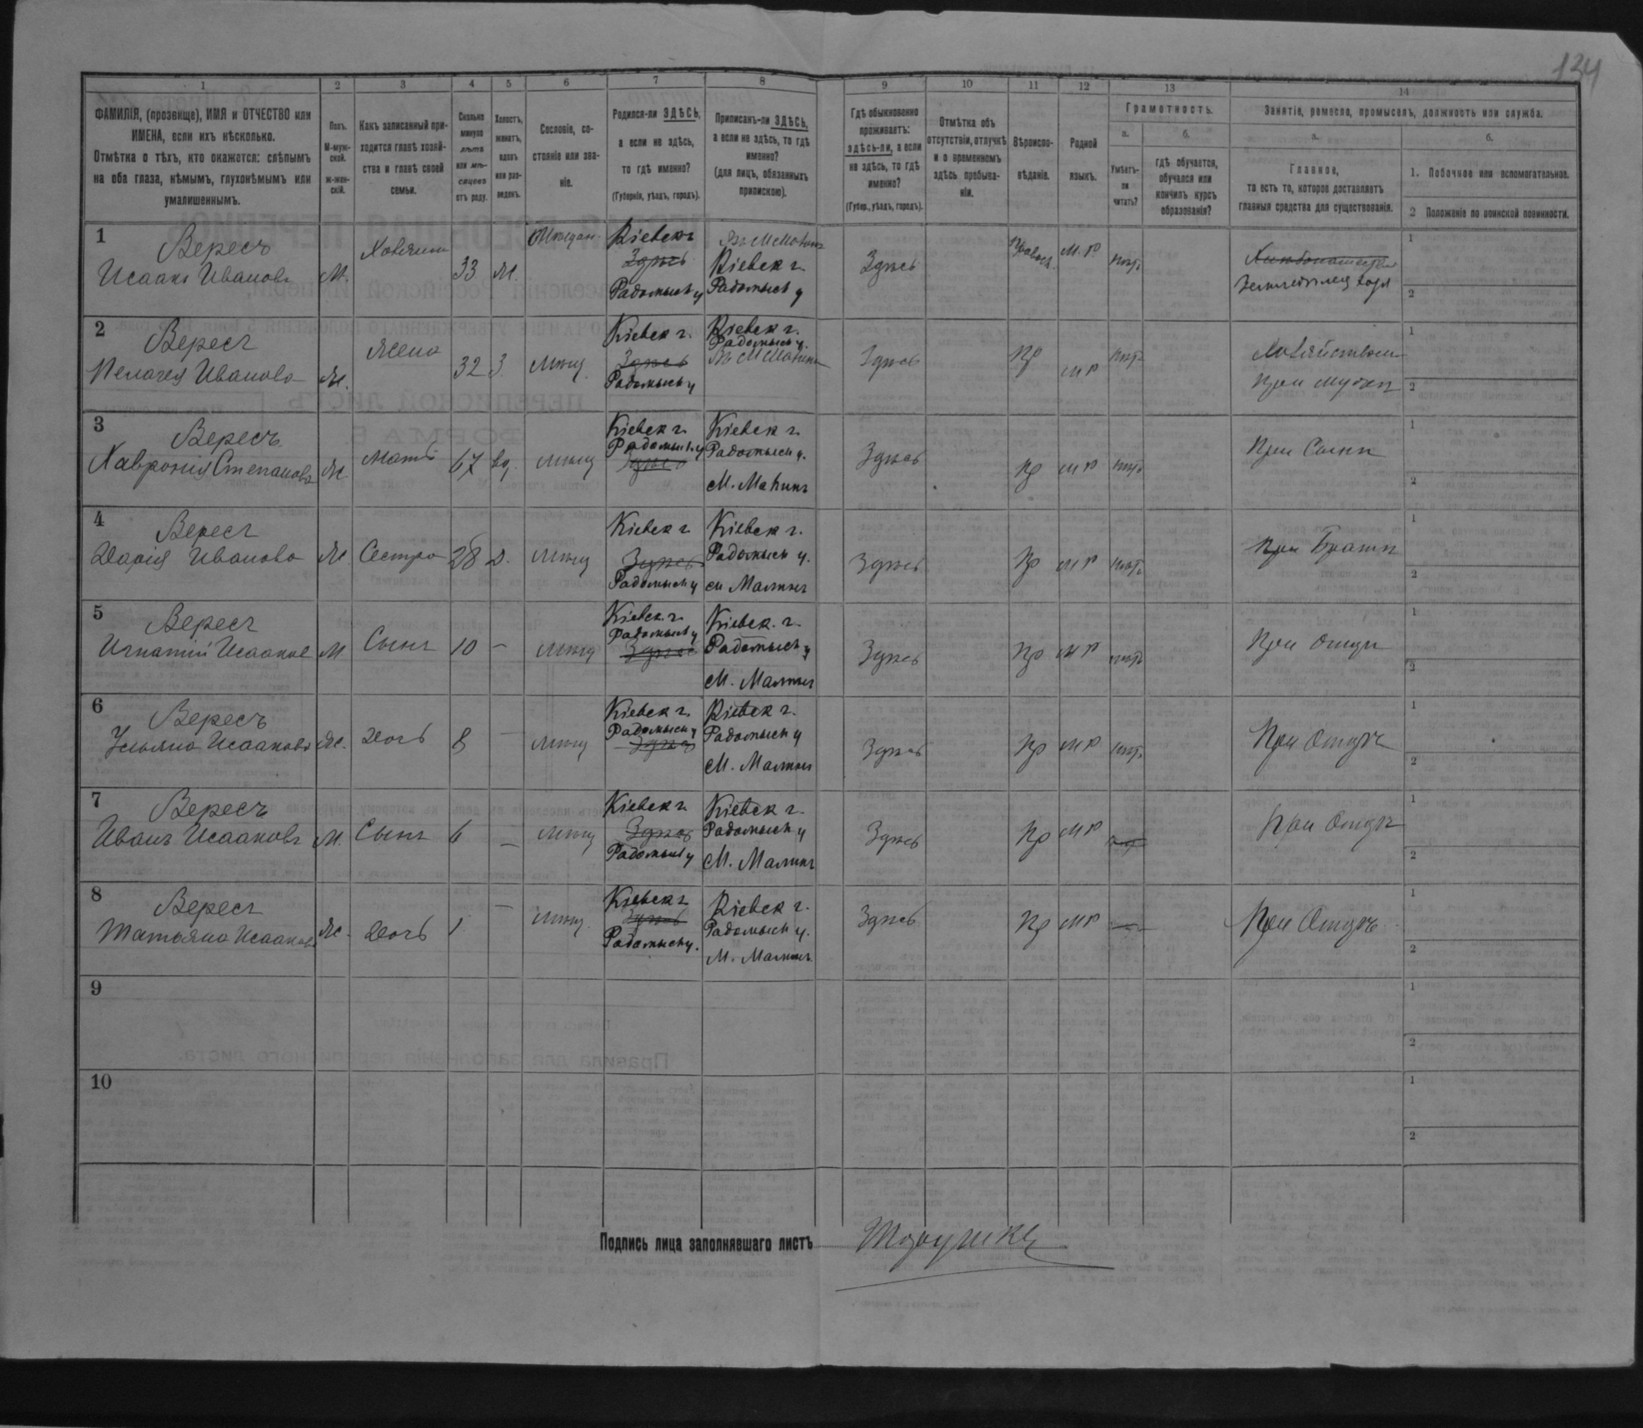 134
1 2 3 4 5 6 7 8 9 10 11 12 13 14
ФАМИЛІЯ, (прозвище), ИМЯ и ОТЧЕСТВО или
ИМЕНА, если ихъ нѣсколько.
Отмѣтка о тѣхъ, кто окажется: слѣпымъ
на оба глаза, нѣмымъ, глухонѣмымъ или
умалишеннымъ.
Полъ.
М-муж-
ской.
Ж-жен-
скій.
Какъ записанный при-
ходится главѣ хозяй-
ства и главѣ своей
семьи.
Сколько
минуло
лѣтъ
или мѣ-
сяцевъ
отъ роду.
Холостъ,
женатъ,
вдовъ
или раз-
веденъ.
Сословіе, со-
стояніе или зва-
ніе.
Родился-ли ЗДѢСЬ,
а если не здѣсь,
то гдѣ именно?
(Губернія, уѣздъ, городъ).
Приписанъ-ли ЗДѢСЬ,
а если не здѣсь, то гдѣ
именно?
(для лицъ, обязанныхъ
припискою).
Гдѣ обыкновенно
проживаетъ:
здѣсь-ли, а если
не здѣсь, то гдѣ
именно?
(Губер., уѣздъ, городъ).
Отмѣтка объ
отсутствіи, отлучкѣ
и о временномъ
здѣсь пребыва-
ніи.
Вѣроиспо-
вѣданіе.
Родной
языкъ.
Грамотность.
а.
Умѣетъ-
ли
читать?
б.
гдѣ обучается,
обучался или
кончилъ курсъ
образованія?
Занятіе, ремесло, промыселъ, должность или служба.
а.
Главное,
то есть то, которое доставляетъ
главныя средства для существованія.
б.
1. Побочное или вспомогательное.
2 Положеніе по воинской повинности.
1
Вересъ
Исаакъ Ивановъ
М.
Хозяинъ
33
Ж.
Кіевск г
Здѣсь
Радомысл у
Кіевск г.
Радомысл у
Здѣсь
Правосл.
М.Р
2
Вересъ
Пелагея Иванова
Ж.
Жена
32
З
мѣщ
Кіевск г.
Здѣсь
Радомысл у
Кіевск г.
Радомысл у.
Здѣсь
Пр
МР
Хозяйством
при мужѣ
3
Вересъ
Хавронія Степанова
Ж.
Мать
67
вд.
мѣщ
Кіевск г.
Радомысл у
Здѣсь
Кіевск г.
Радомысл у.
М. Малинъ
Здѣсь
Пр
МР
При Сынѣ
4
Вересъ
Дарія Иванова
Ж
Сестра
28
Д.
мѣщ
Кіевск г
Здѣсь
Радомысл у
Кіевск г.
Радомысл у.
м Малинъ
Здѣсь
Пр
МР
При Братѣ
5
Вересъ
Игнатій Исааков
М
Сынъ
10
—
мѣщ
Кіевск г.
Радомысл у
Здѣсь
Кіевск. г.
Радомысл у
М. Малинъ
Здѣсь
Пр
МР
При отцѣ
6
Вересъ
Ульяна Исаакова
Ж.
Дочь
8
—
мѣщ
Кіевск г.
Радомысл у
Здѣсь
Кіевск г.
Радомысл у
М. Малинъ
Здѣсь
Пр
МР
При Отцѣ
7
Вересъ
Иванъ Исааковъ
М.
Сынъ
6
—
мѣщ
Кіевск г.
Здѣсь
Радомысл у
Кіевск г.
Радомысл у
М. Малинъ
Здѣсь
Пр
МР
При Отцѣ
8
Вересъ
Татьяна Исааков
Ж.
Дочь
1
—
мѣщ.
Кіевск г
Здѣсь
Радомысл у.
Кіевск г.
Радомысл у.
М. Малинъ
Здѣсь
Пр
МР
—
При Отцѣ
9
10
Подпись лица заполнявшаго листъ